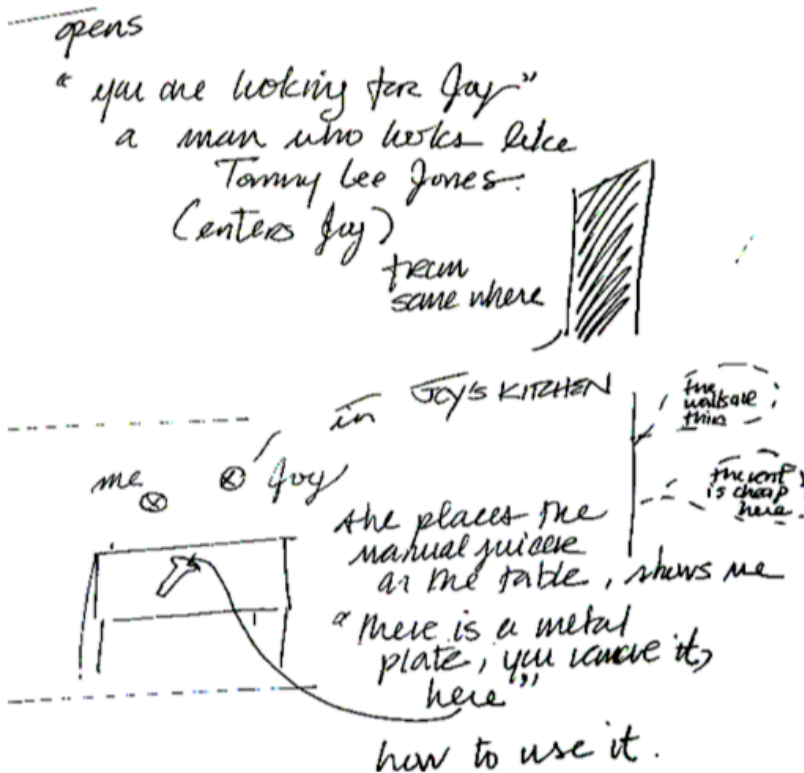 opens
"you are looking for Joy"
a man who looks like
Tommy Lee Jones.
(enters Joy)
from
somewhere
in JOY'S KITCHEN
the
walls are
thin
me
Joy
the rent
is cheap
here.
she places the
manual juicer
on the table, shows me
"there is a metal
plate, you remove it,
here",
how to use it.